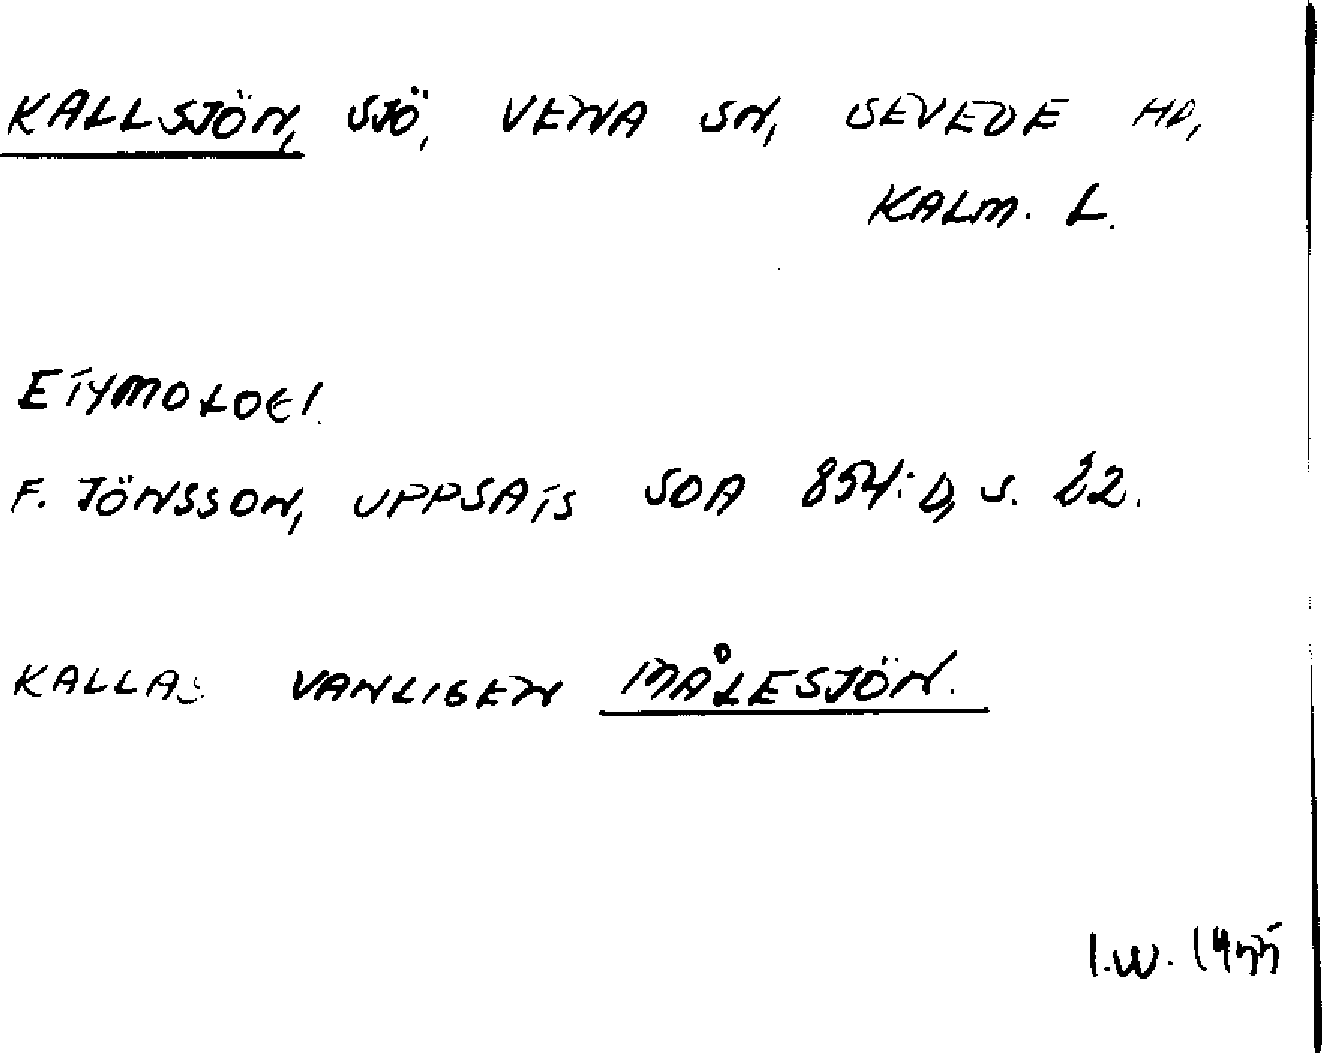 KALLSJÖN, SJÖ, VENA SN, SEVEDE HD,
KALM. L.
ETYMOLOGI.
F. JÖNSSON, UPPSATS SOA 854:D, S. 22.
KALLAS VANLIGEN MÅLESJÖN.
I.W.